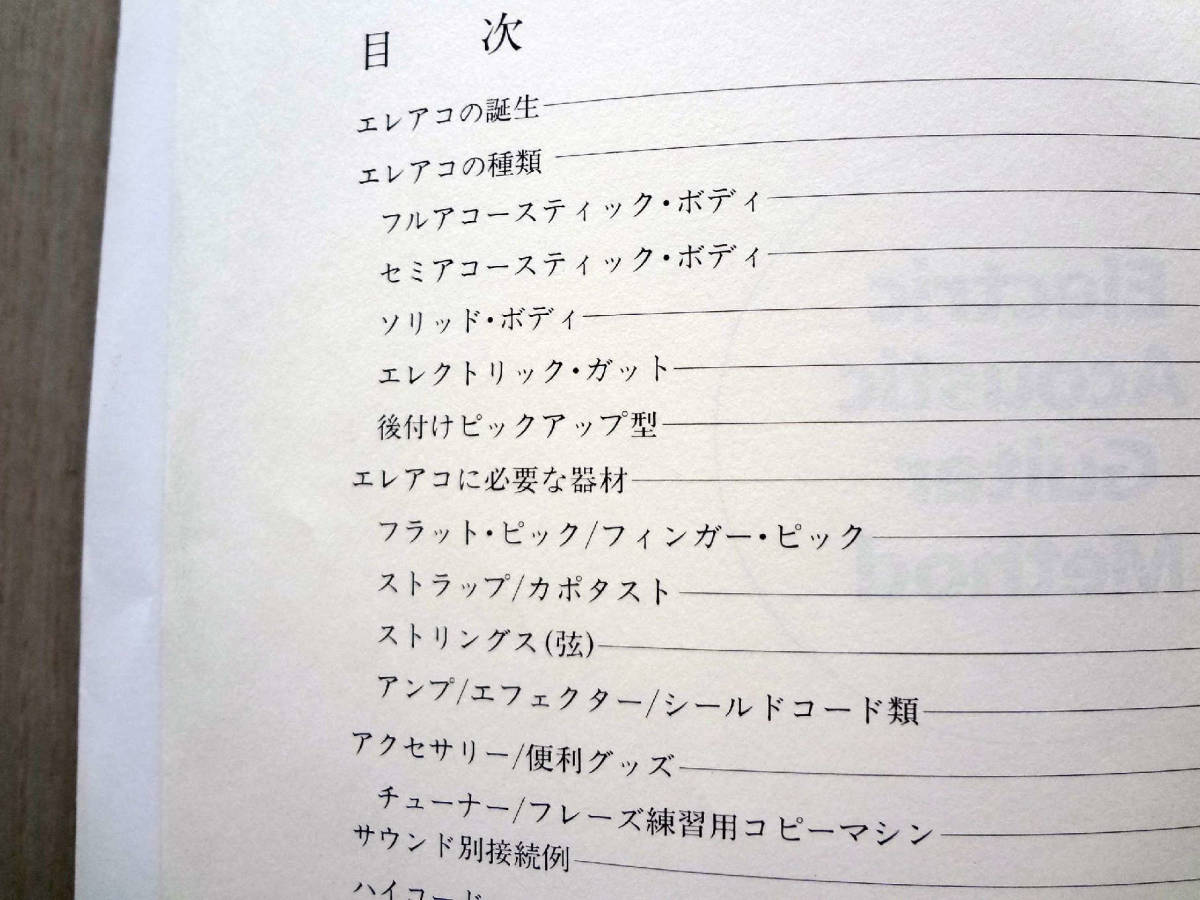 目 次
エレアコの誕生
エレアコの種類
フルアコースティック・ボディ
セミアコースティック・ボディ
ソリッド・ボディ
エレクトリック・ガット
後付けピックアップ型
エレアコに必要な器材
フラット・ピック/フィンガー・ピック
ストラップ/カポタスト
ストリングス(弦)
アンプ/エフェクター/シールドコード類
アクセサリー/便利グッズ
チューナー/フレーズ練習用コピーマシン
サウンド別接続例
ハイコード
Electric
Acoustic
Guitar
Method